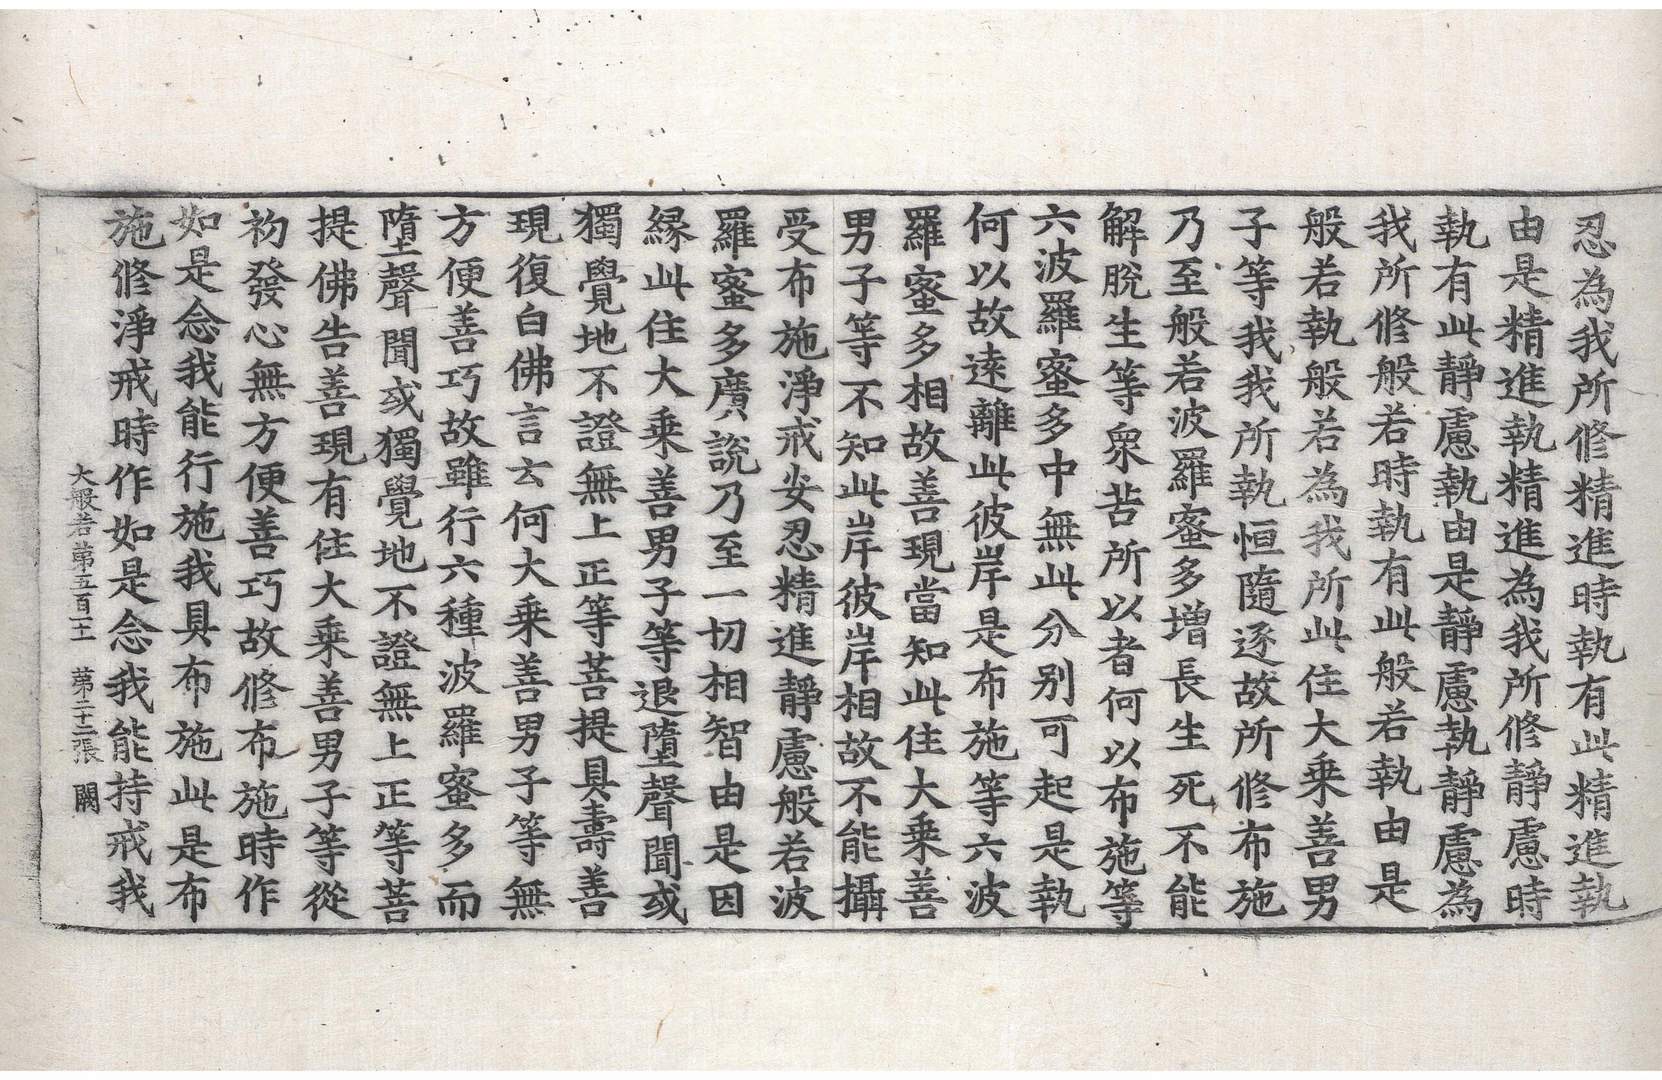 忍為我所修精進時執有此精進執
由是精進執精進為我所修靜慮時
執有此靜慮執由是靜慮執靜慮為
我所修般若時執有此般若執由是
般若執般若為我所此住大乘善男
子等我我所執恒隨逐故所修布施
乃至般若波羅蜜多增長生死不能
解脫生等衆苦所以者何以布施等
六波羅蜜多中無此分別可起是執
何以故遠離此彼岸是布施等六波
羅蜜多相故善現當知此住大乘善
男子等不知此岸彼岸相故不能攝
受布施淨戒安忍精進靜慮般若波
羅蜜多廣說乃至一切相智由是因
緣此住大乘善男子等退墮聲聞或
獨覺地不證無上正等菩提具壽善
現復白佛言云何大乘善男子等無
方便善巧故雖行六種波羅蜜多而
墮聲聞或獨覺地不證無上正等菩
提佛告善現有住大乘善男子等從
初發心無方便善巧故修布施時作
如是念我能行施我具布施此是布
施修淨戒時作如是念我能持戒我
大般若第五百十一　第二十二張　闕